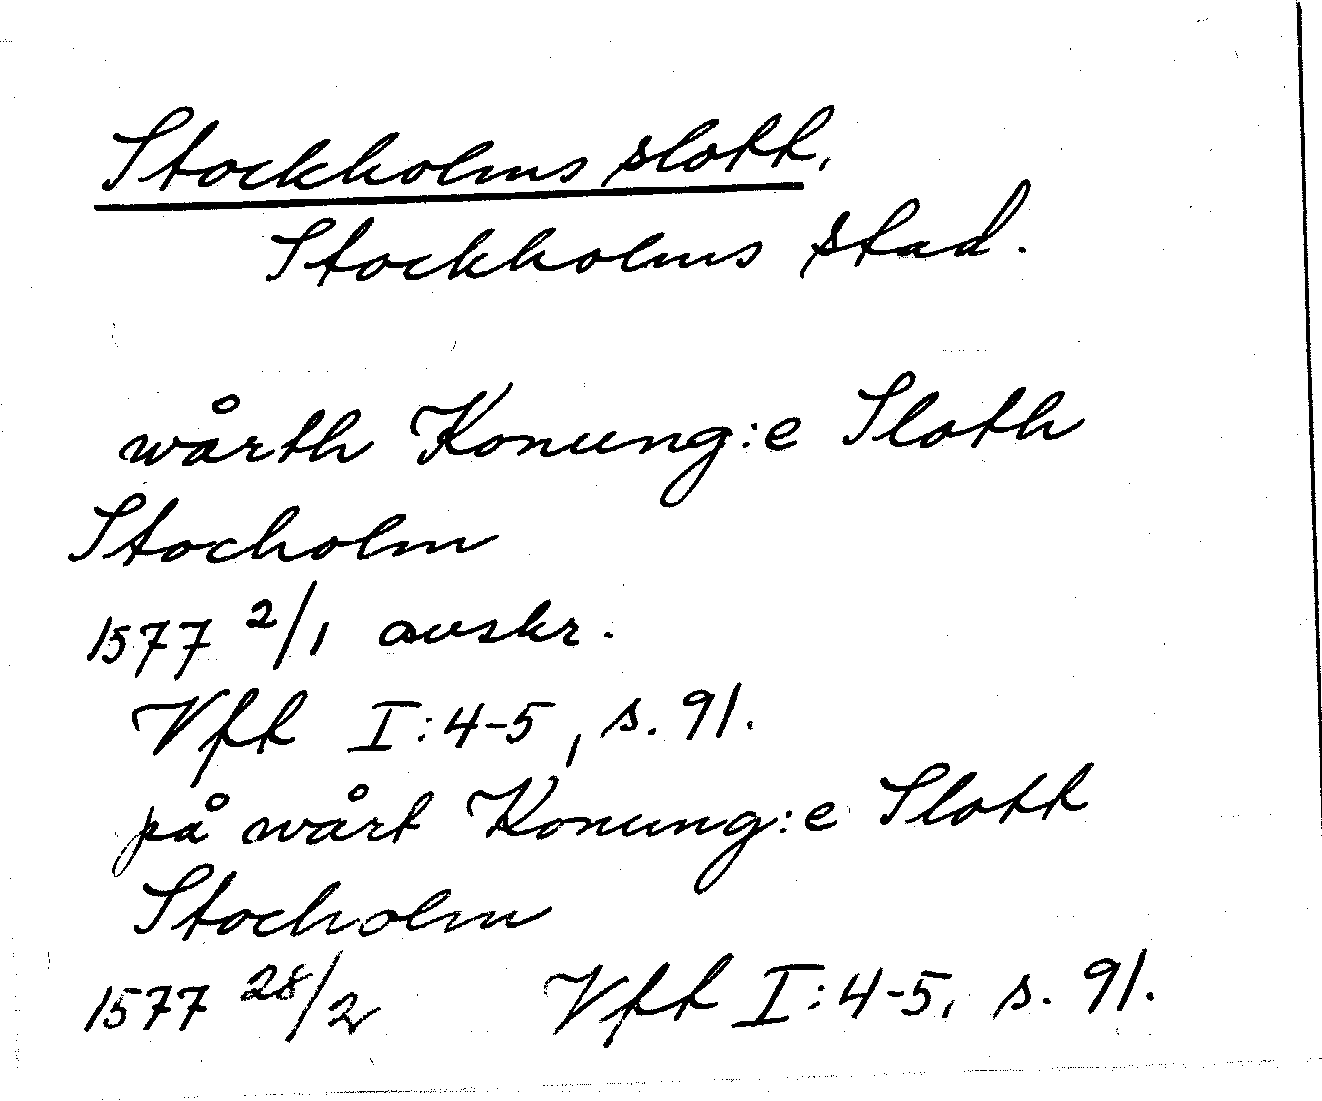 Stockholms slott,
Stockholms stad.
wårth Konung:e Sloth
Stocholm
1577 2/1 avskr.
Vfk I:4-5, s. 91.
på wårt Konung:e Slott
Stocholm
1577 28/2 Vfk I:4-5, s. 91.